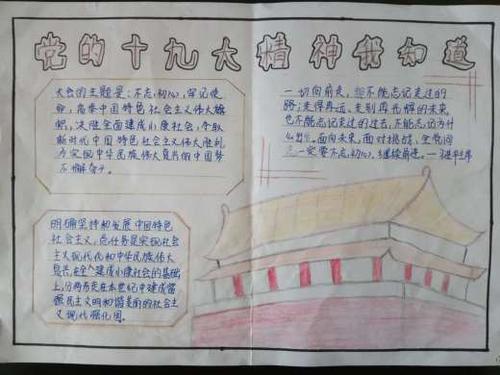 党的十九大精神我知道
大会的主题是：不忘初心，牢记使
命，高举中国特色社会主义伟大旗
帜，决胜全面建成小康社会，夺取
新时代中国特色社会主义伟大胜利
为实现中华民族伟大复兴的中国梦
不懈奋斗。
一切向前走，都不能忘记走过的
路；走得再远、走到再光辉的未来
也不能忘记走过的过去，不能忘记为什
么出发。面向未来，面对挑战，全党同
志一定要不忘初心、继续前进。—习近平
明确坚持和发展中国特色
社会主义，总任务是实现社会
主义现代化和中华民族伟大
复兴，在全面建成小康社会的基础
上，分两步走在本世纪中建成富强
民主文明和谐美丽的社会主
义现代强化国。